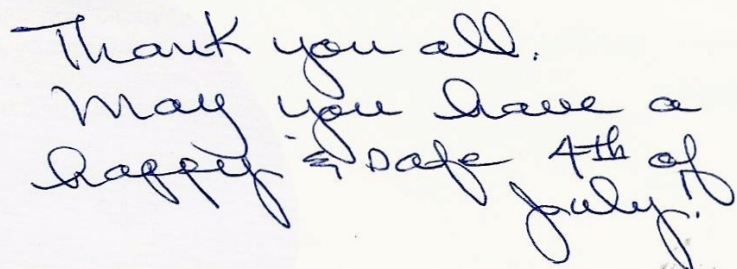 Thank you all.
May you have a
happy & safe 4th of
July!